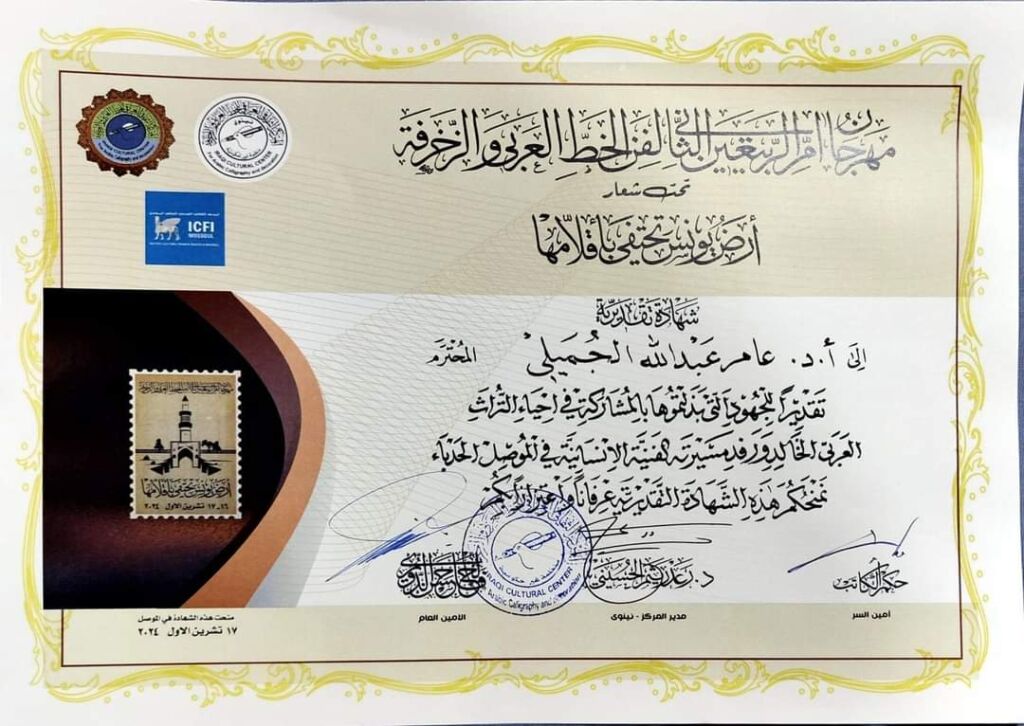 مهرجان أم الربيعين الثاني لفن الخط العربي والزخرفة
تحت شعار
أرض يونس تحتفي بأقلامها
IRAQI CULTURAL CENTER
ICFI
شهادة تقديرية
إلى أ.د. عامر عبدالله الجميلي المحترم
تقديراً للجهود التي بذلتموها بالمشاركة في إحياء التراث
العربي الخالد ورفد مسيرته الفنية الإنسانية في الموصل الحدباء
نمنحكم هذه الشهادة التقديرية عرفاناً واعتزازاً بكم
أرض يونس تحتفي بأقلامها
١٦-١٧ تشرين الاول ٢٠٢٤
حكم الكاتب
أمين السر
د. رعد الحسيني
مدير المركز - نينوى
IRAQI CULTURAL CENTER
الامين العام
منحت هذه الشهادة في الموصل
١٧ تشرين الاول ٢٠٢٤